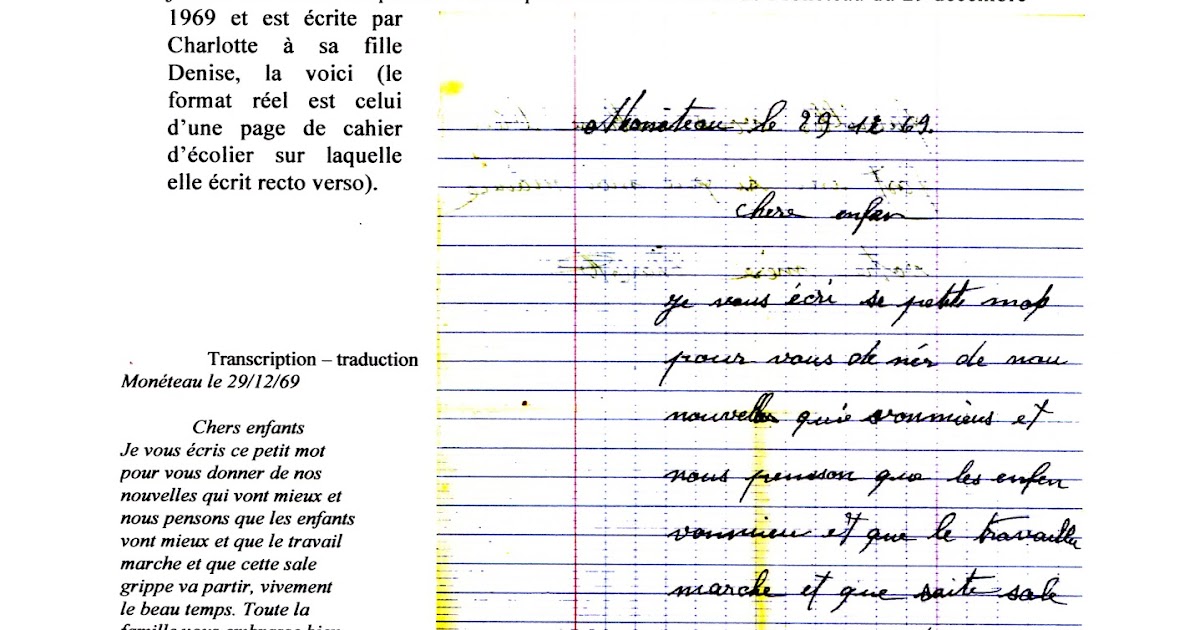 1969 et est écrite par
Charlotte à sa fille
Denise, la voici (le
format réel est celui
d'une page de cahier
d'écolier sur laquelle
elle écrit recto verso).
Transcription – traduction
Monéteau le 29/12/69
Chers enfants
Je vous écris ce petit mot
pour vous donner de nos
nouvelles qui vont mieux et
nous pensons que les enfants
vont mieux et que le travail
marche et que cette sale
grippe va partir, vivement
le beau temps. Toute la
famille vous embrasse bien
Monéteau le 29 12 69.
chere enfan
je vous écri se petite mop
pour vous do nér de nau
nouvelles qu'ie vonmieus et
nous pensson que les enfen
vonmieu et que le travaille
marche et que saite sale